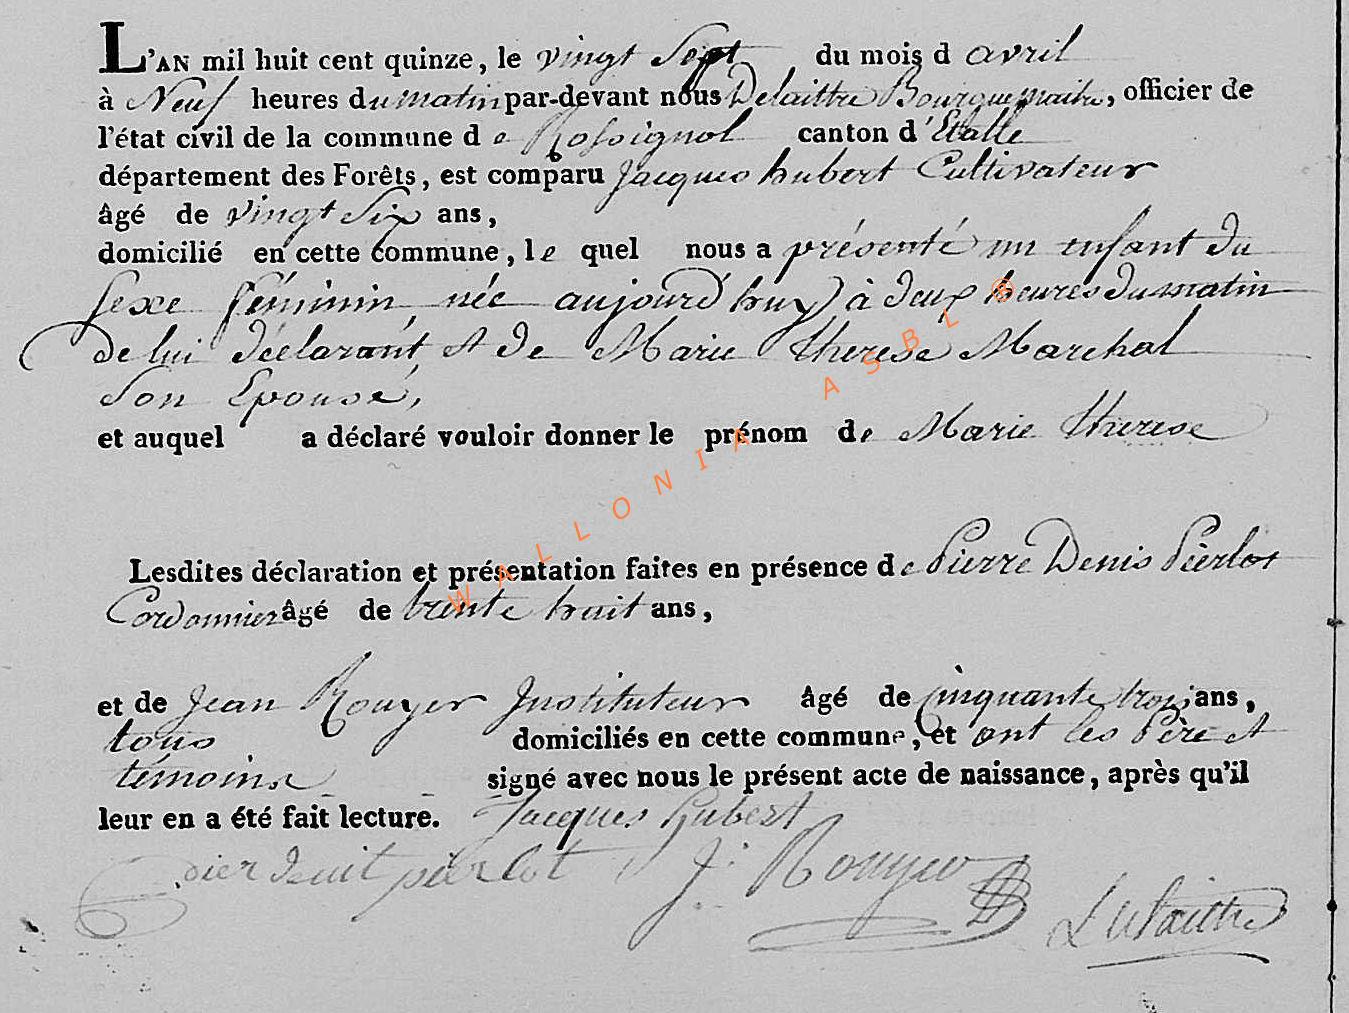 L'AN mil huit cent quinze, le vingt Sept du mois d avril
à Neuf heures du matin par-devant nous Delaittre Bourguemaitre, officier de
l'état civil de la commune de Rossignol canton d'Etalle
département des Forêts, est comparu Jacques hubert Cultivateur
âgé de vingt Six ans,
domicilié en cette commune, le quel nous a présenté un enfant du
sexe féminin, née aujourd'huy à deux heures du matin
de lui déclarant et de Marie therese Marchal
Son Epouse,
et auquel a déclaré vouloir donner le prénom de Marie therese
Lesdites déclaration et présentation faites en présence de Pierre Denis Pierlot
Cordonnier âgé de trente huit ans,
et de Jean Rouyer Instituteur âgé de Cinquante trois ans,
tous domiciliés en cette commune, et ont les Père et
témoins signé avec nous le présent acte de naissance, après qu'il
leur en a été fait lecture. Jacques hubert
pierlot J. Rouyer
Delaittre
WALLONIA ASBL ®